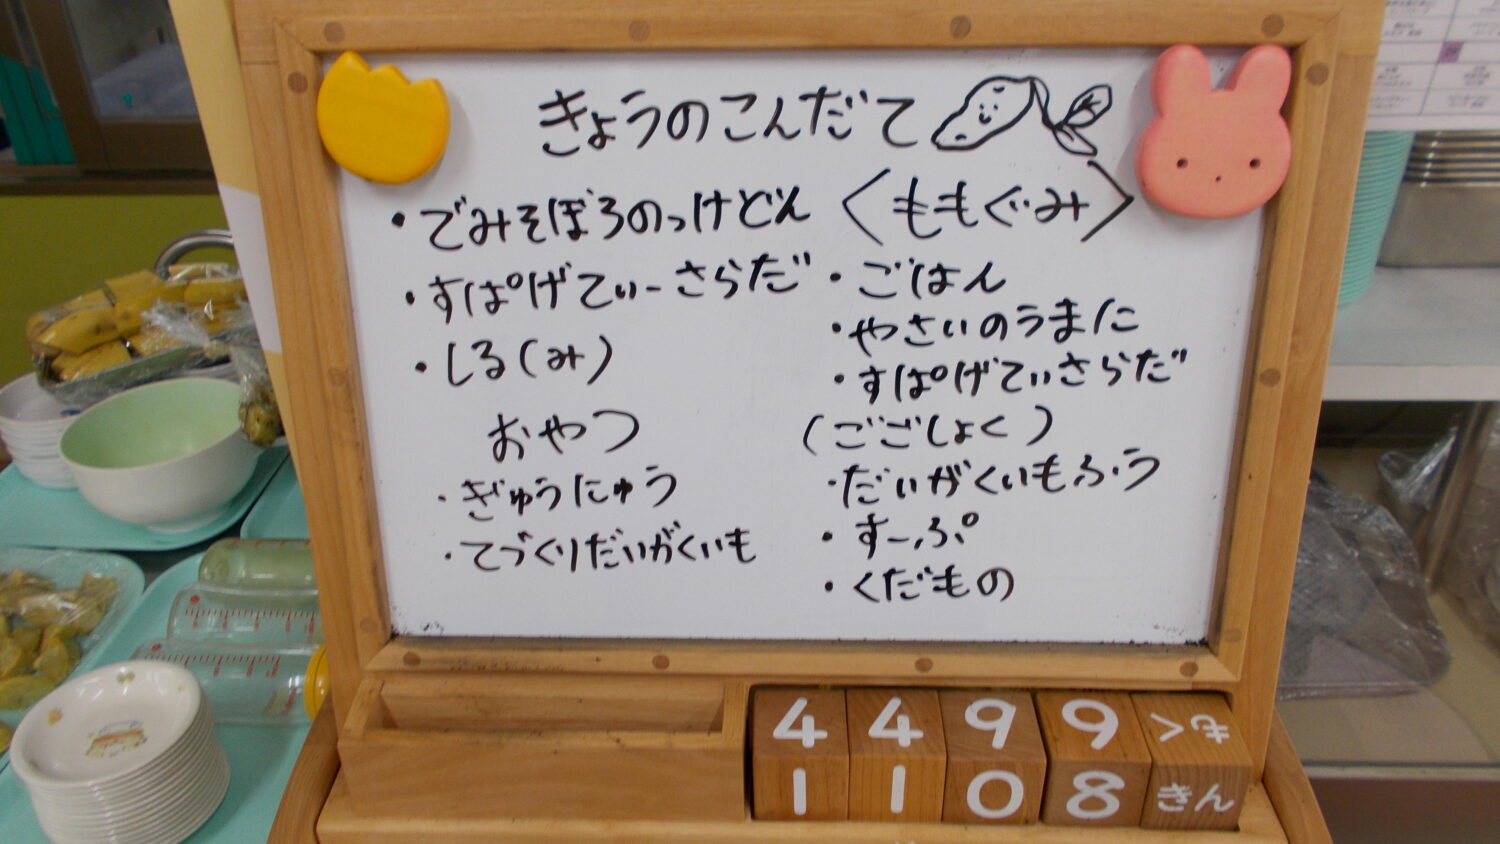 きょうのこんだて
・でみそぼろのっけどん
・すぱげてぃーさらだ
・しる(み)
おやつ
・ぎゅうにゅう
・てづくりだいがくいも
〈ももぐみ〉
・ごはん
・やさいのうまに
・すぱげてぃさらだ
(ごごしょく)
・だいがくいもふう
・すーぷ
・くだもの
4 4 9 9 もく
1 1 0 8 きん